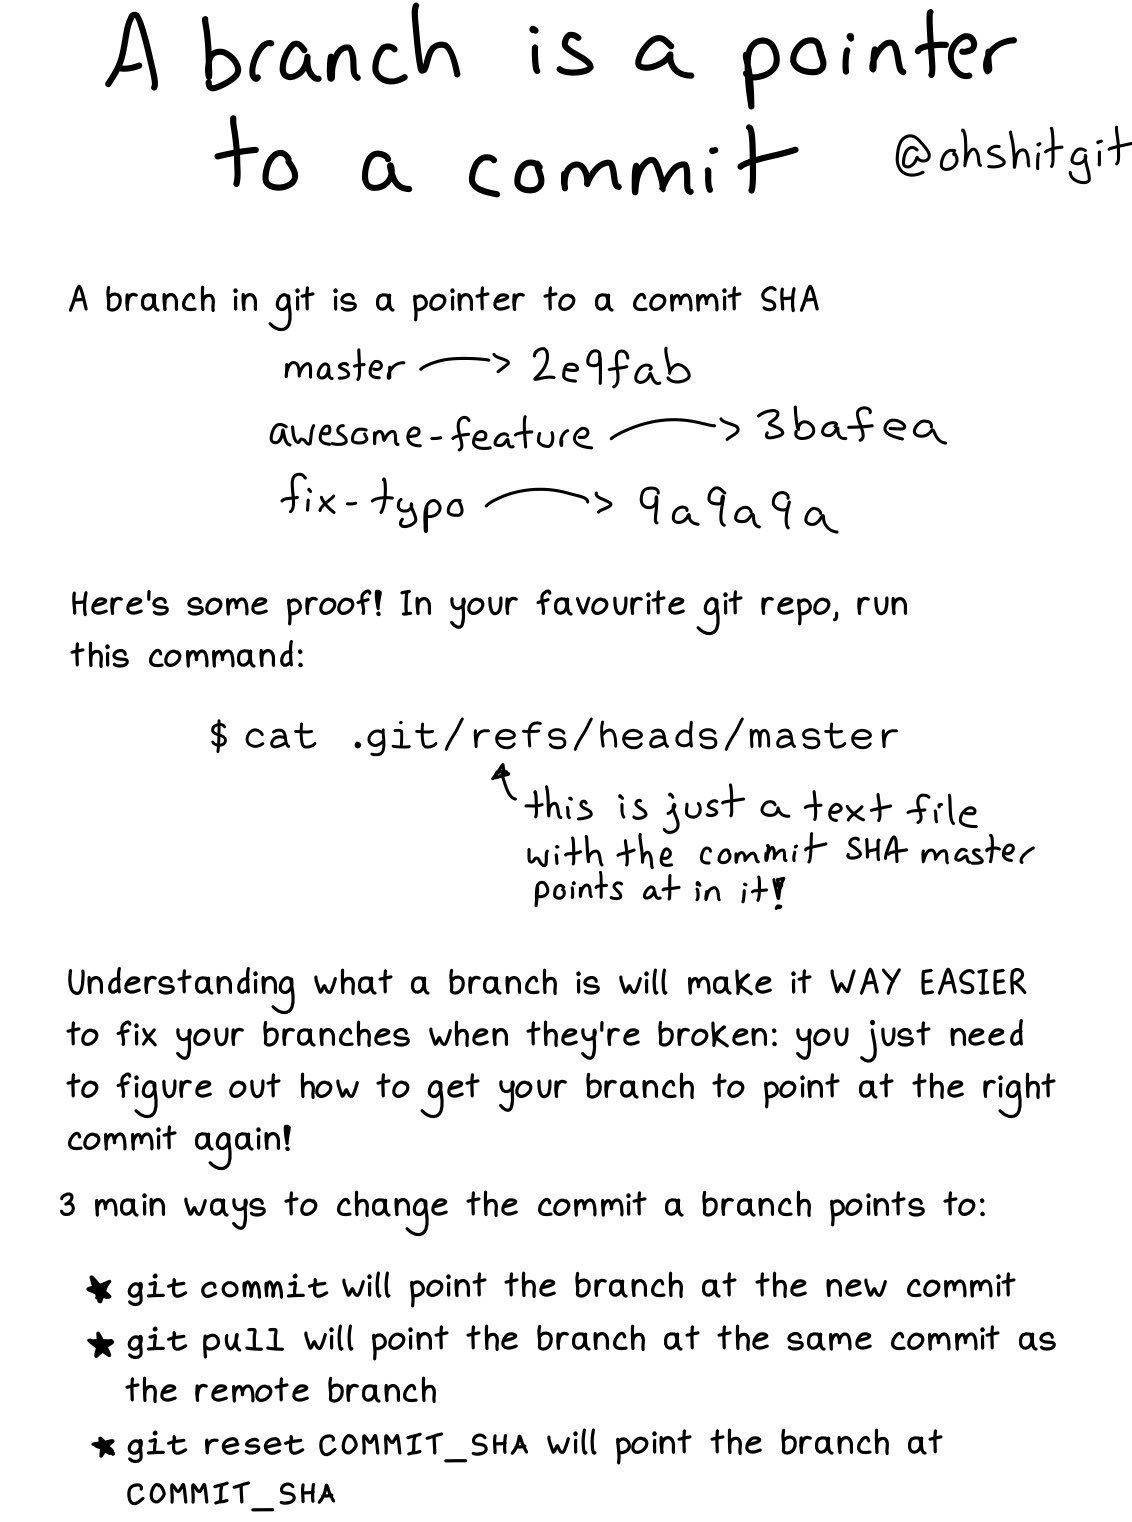 A branch is a pointer
to a commit
@ohshitgit
A branch in git is a pointer to a commit SHA
master → 2e9fab
awesome-feature → 3bafea
fix-typo → 9a9a9a
Here's some proof! In your favourite git repo, run
this command:
$ cat .git/refs/heads/master
this is just a text file
with the commit SHA master
points at in it!
Understanding what a branch is will make it WAY EASIER
to fix your branches when they're broken: you just need
to figure out how to get your branch to point at the right
commit again!
3 main ways to change the commit a branch points to:
★ git commit will point the branch at the new commit
★ git pull will point the branch at the same commit as
the remote branch
★ git reset COMMIT_SHA will point the branch at
COMMIT_SHA